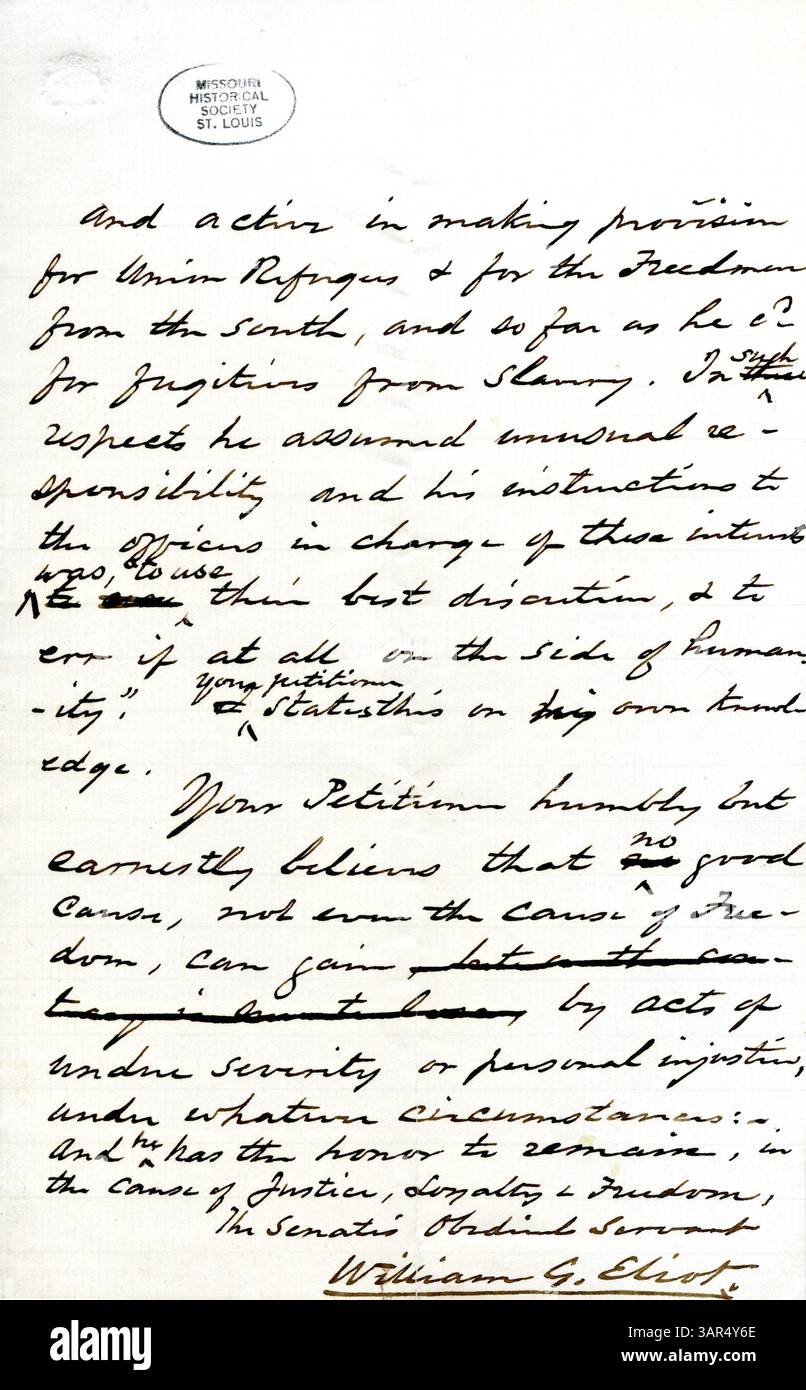 MISSOURI
HISTORICAL
SOCIETY
ST. LOUIS
and active in making provision
for Union Refugees & for the Freedmen
from the South, and so far as he cd
for fugitives from Slavery. In such these
respects he assumed unusual re-
sponsibility and his instructions to
the officers in charge of these interests
was, "to use
to their best discretion, & to
err if at all on the side of human-
-ity." your petitioner
States this on his own knowl
edge.
Your Petitioner humbly but
earnestly believes that no good
cause, not even the cause of Free-
dom, can gain
by acts of
undue severity or personal injustice,
under whatever circumstances:-
And he has the honor to remain, in
the cause of Justice, Loyalty & Freedom,
The Senate's Obedient Servant
William G. Eliot.
alamy
Image ID: 3AR4Y6E
www.alamy.com